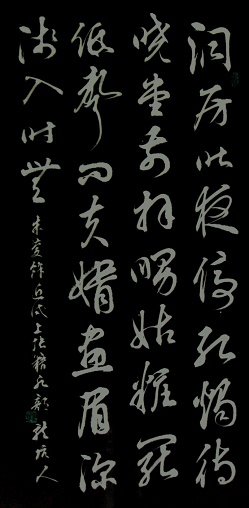 洞房昨夜停紅燭待
曉堂前拜舅姑粧罷
低聲問夫婿畫眉深
淺入時無
朱慶餘近試上張籍水部 人